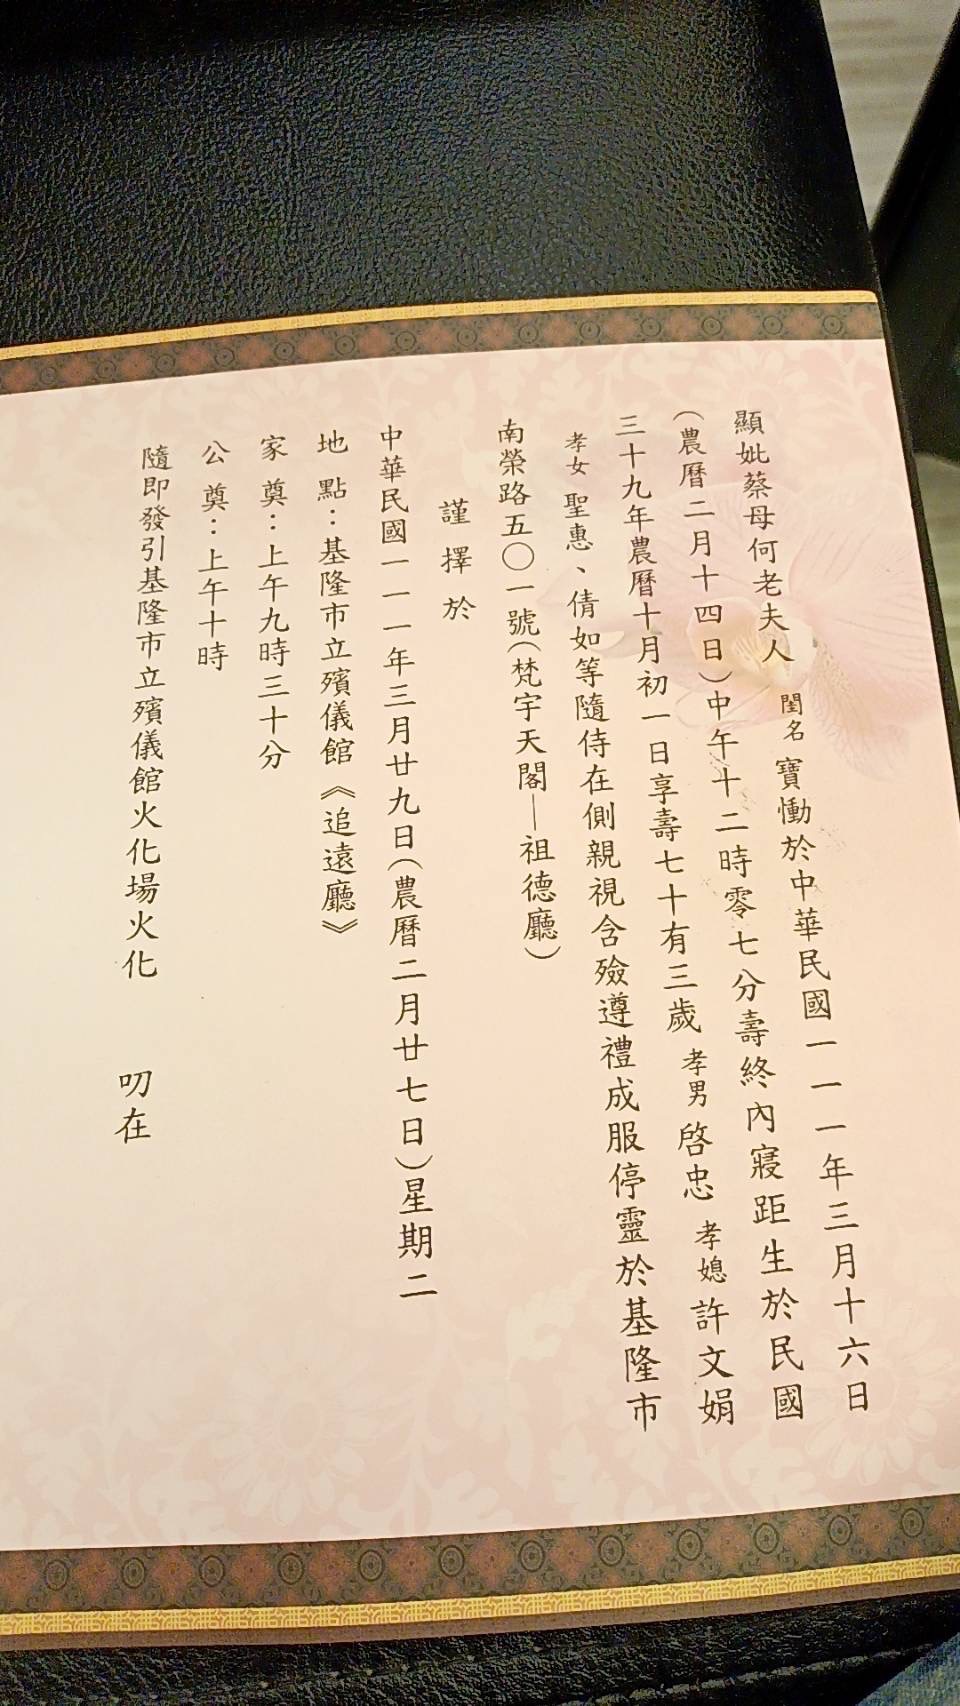 顯妣蔡母何老夫人 閨名 寶慟於中華民國一一一年三月十六日
(農曆二月十四日)中午十二時零七分壽終內寢距生於民國
三十九年農曆十月初一日享壽七十有三歲 孝男 啓忠 孝媳 許文娟
孝女 聖惠、倩如等隨侍在側親視含殮遵禮成服停靈於基隆市
南榮路五〇一號(梵宇天閣—祖德廳)
謹擇於
中華民國一一一年三月廿九日(農曆二月廿七日)星期二
地點:基隆市立殯儀館《追遠廳》
家奠:上午九時三十分
公奠:上午十時
隨即發引基隆市立殯儀館火化場火化 叨在